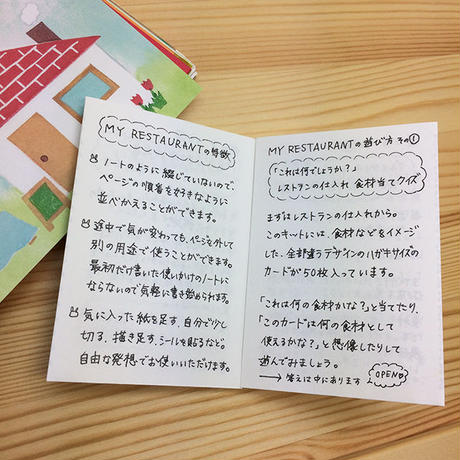 MY RESTAURANTの特徴
ノートのように綴じていないので、
ページの順番を好きなように
並べかえることができます。
途中で気が変わっても、ページを外して
別の用途で使うことができます。
最初だけ書いた使いかけのノートに
ならないので気軽に書き始められます。
気に入った紙を足す、自分で少し
切る、描き足す、シールを貼るなど。
自由な発想でお使いいただけます。
MY RESTAURANTの遊び方 その①
「これは何でしょうか?」
レストランの仕入れ 食材当てクイズ
まずはレストランの仕入れから。
このキットには、食材などをイメージ
した、全部違うデザインのハガキサイズの
カードが50枚入っています。
「これは何の食材かな?」と当てたり、
「このカードは何の食材として
使えるかな?」と想像したりして
遊んでみましょう。
→ 答えは中にあります
OPEN